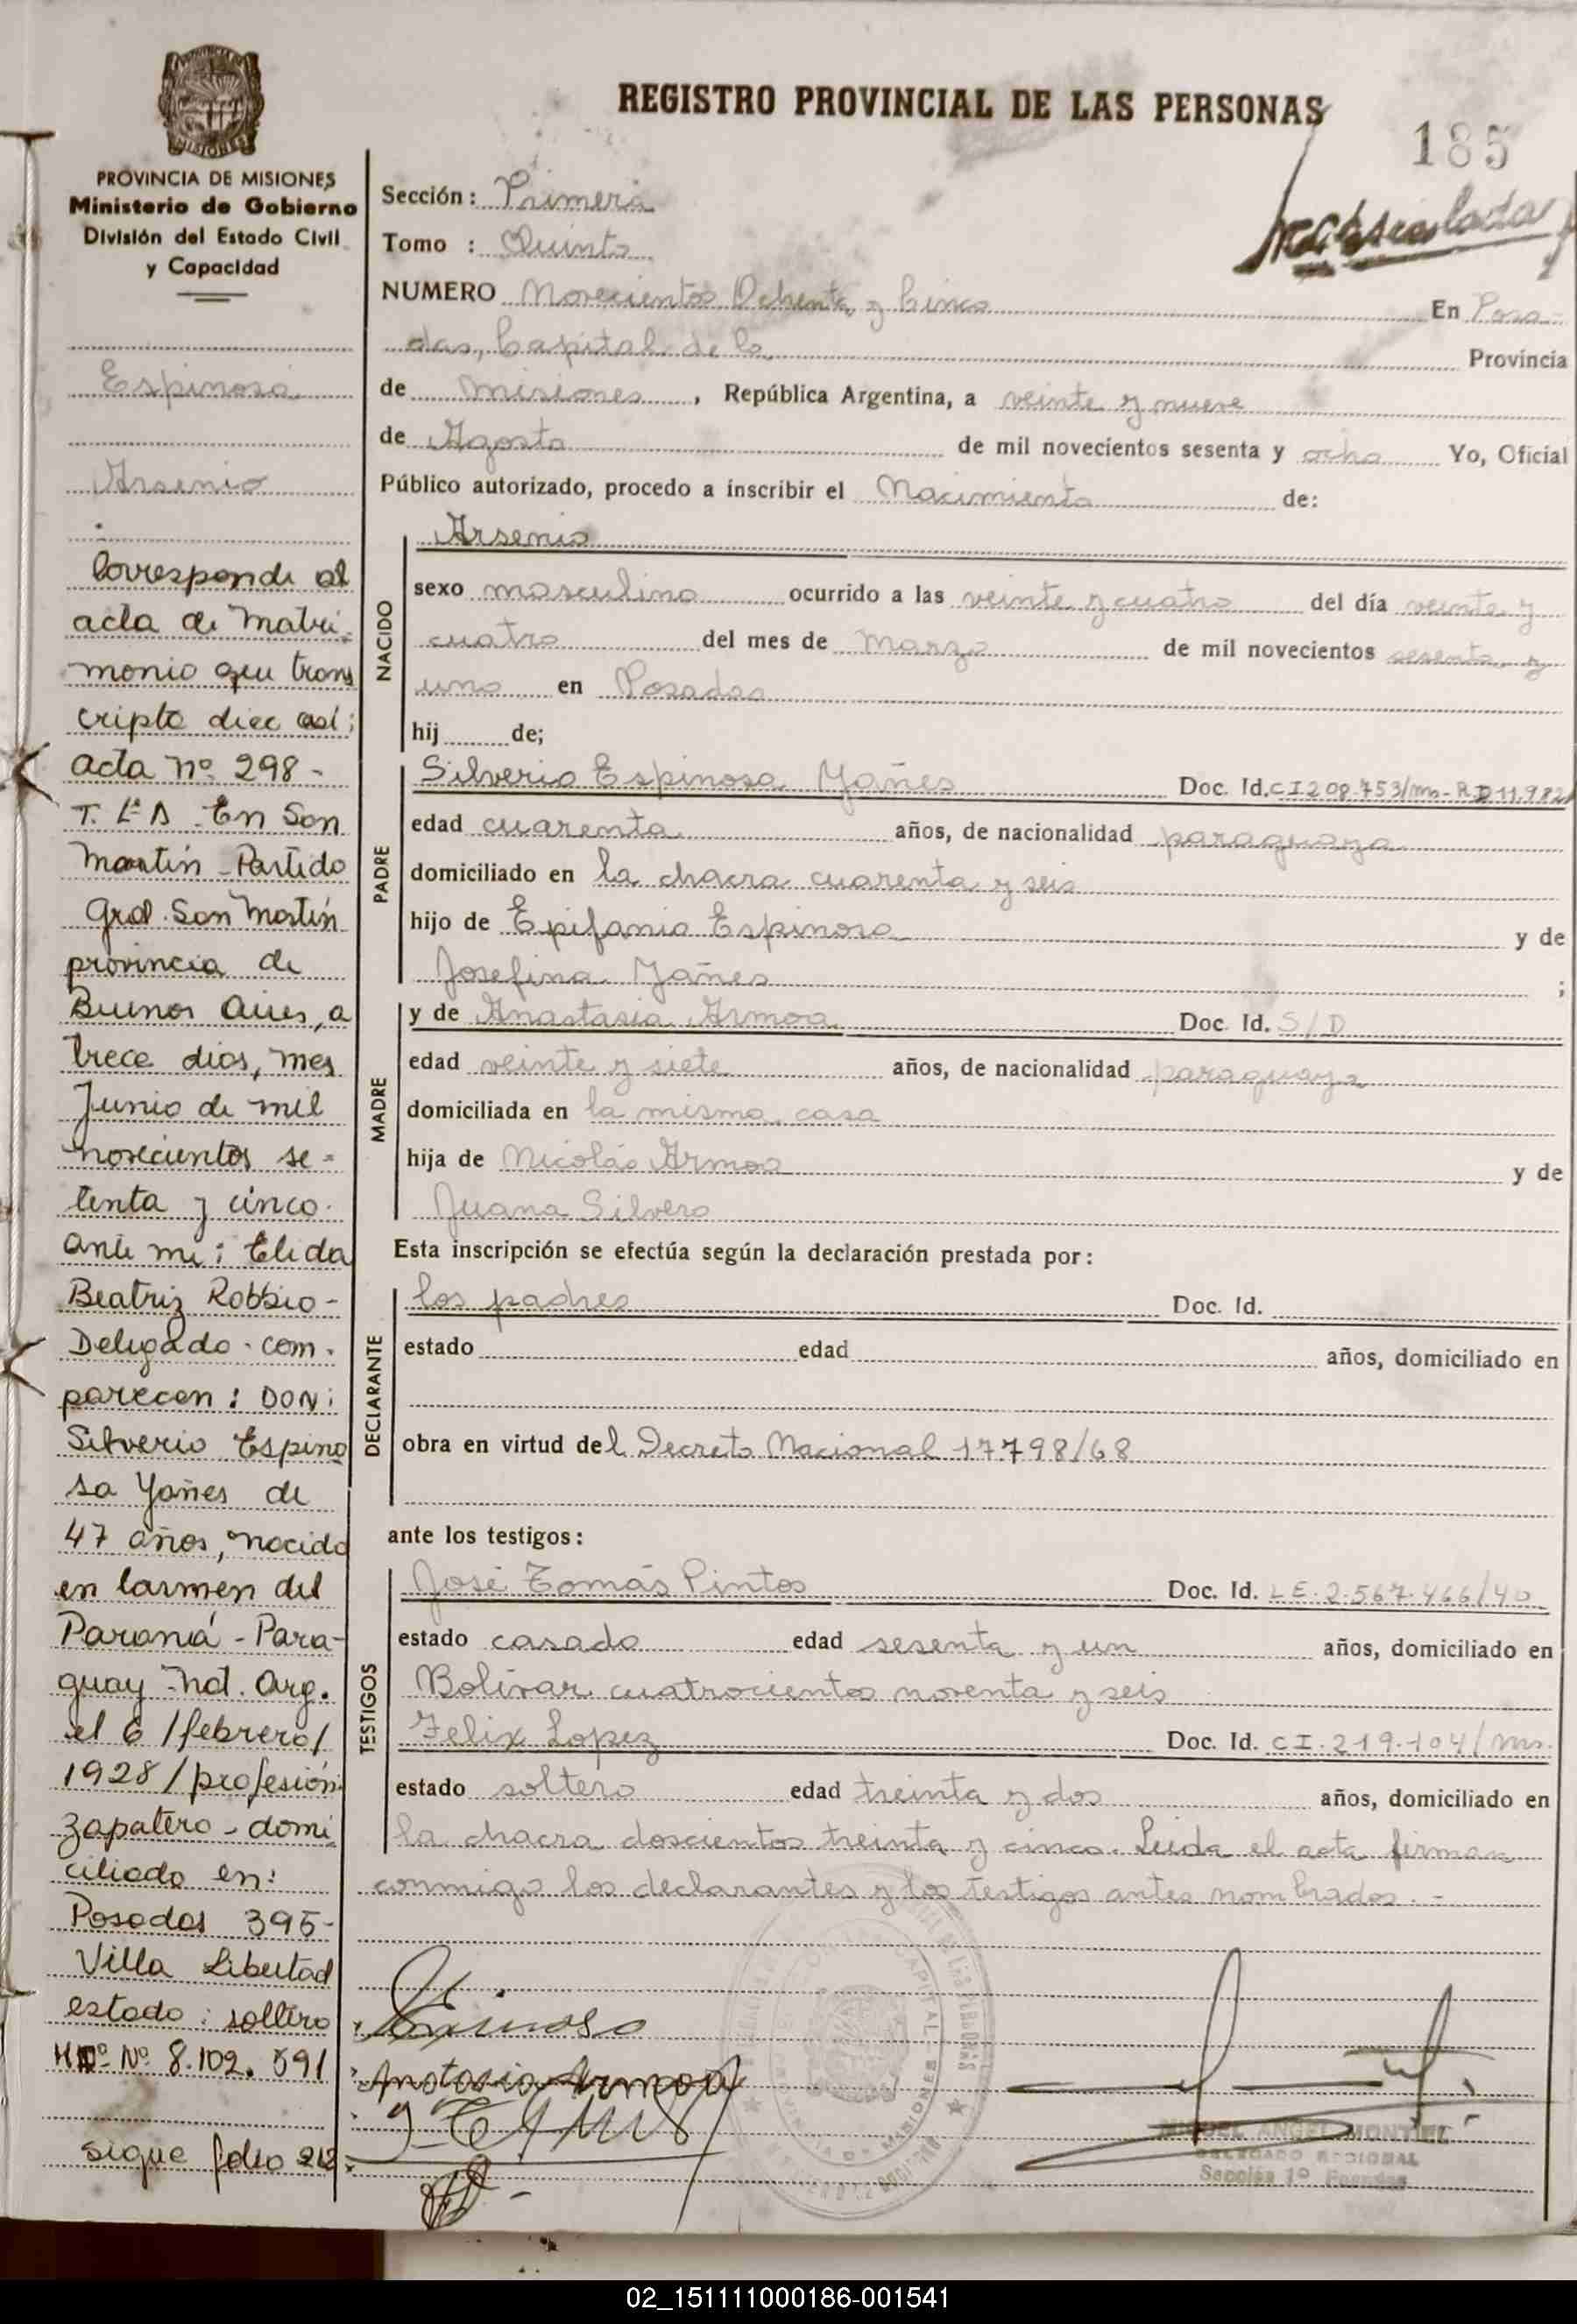 PROVINCIA DE MISIONES
Ministerio de Gobierno
División del Estado Civil
y Capacidad
REGISTRO PROVINCIAL DE LAS PERSONAS
185
Sección: Primera
Tomo : Quinto
NUMERO Novecientos Ochenta y Cinco En Posa-
das, Capital de la Provincia
de Misiones, República Argentina, a veinte y nueve
de Agosto de mil novecientos sesenta y ocho Yo, Oficial
Público autorizado, procedo a inscribir el Nacimiento de:
NACIDO
Arsenio
sexo masculino ocurrido a las veinte y cuatro del día veinte y
cuatro del mes de Marzo de mil novecientos sesenta y
uno en Posadas
hij de;
PADRE
Silverio Espinosa Yañes Doc. Id. C I 208.753/mns- R D 11.982
edad cuarenta años, de nacionalidad paraguaya
domiciliado en la chacra cuarenta y seis
hijo de Epifanio Espinosa y de
Josefina Yañes ;
MADRE
y de Anastasia Armoa Doc. Id. S/D
edad veinte y siete años, de nacionalidad paraguaya
domiciliada en la misma casa
hija de Nicolás Armoa y de
Juana Silvero
Esta inscripción se efectúa según la declaración prestada por:
DECLARANTE
los padres Doc. Id.
estado edad años, domiciliado en
obra en virtud del Decreto Nacional 17798/68
ante los testigos:
TESTIGOS
José Tomás Pintos Doc. Id. L E. 2.567.466/40
estado casado edad sesenta y un años, domiciliado en
Bolívar cuatrocientos noventa y seis
Felix Lopez Doc. Id. C I. 219.104/mns.
estado soltero edad treinta y dos años, domiciliado en
la chacra doscientos treinta y cinco. Leida el acta firman
conmigo los declarantes y los testigos antes nombrados.-
Espinosa
Anastasia Armoa
MIGUEL ANGEL MONTIEL
DELEGADO REGIONAL
Sección 1º Posadas
Espinosa
Arsenio
Corresponde al
acta de Matri-
monio que trans
cripto dice así;
acta nº 298-
T. 1ª A - En San
Martín - Partido
Gral. San Martín
provincia de
Buenos Aires, a
trece días, mes
Junio de mil
novecientos se-
tenta y cinco.
ante mi: Elida
Beatriz Robbio-
Delegado - com-
parecen: DON:
Silverio Espino
sa Yañes de
47 años, nacido
en Carmen del
Paraná - Para-
guay - Nat. Arg.
el 6 /febrero/
1928/profesión
zapatero - domi
ciliado en:
Posadas 395-
Villa Libertad
estado: soltero
Nº 8.102.591
sigue folio 212
02_151111000186-001541